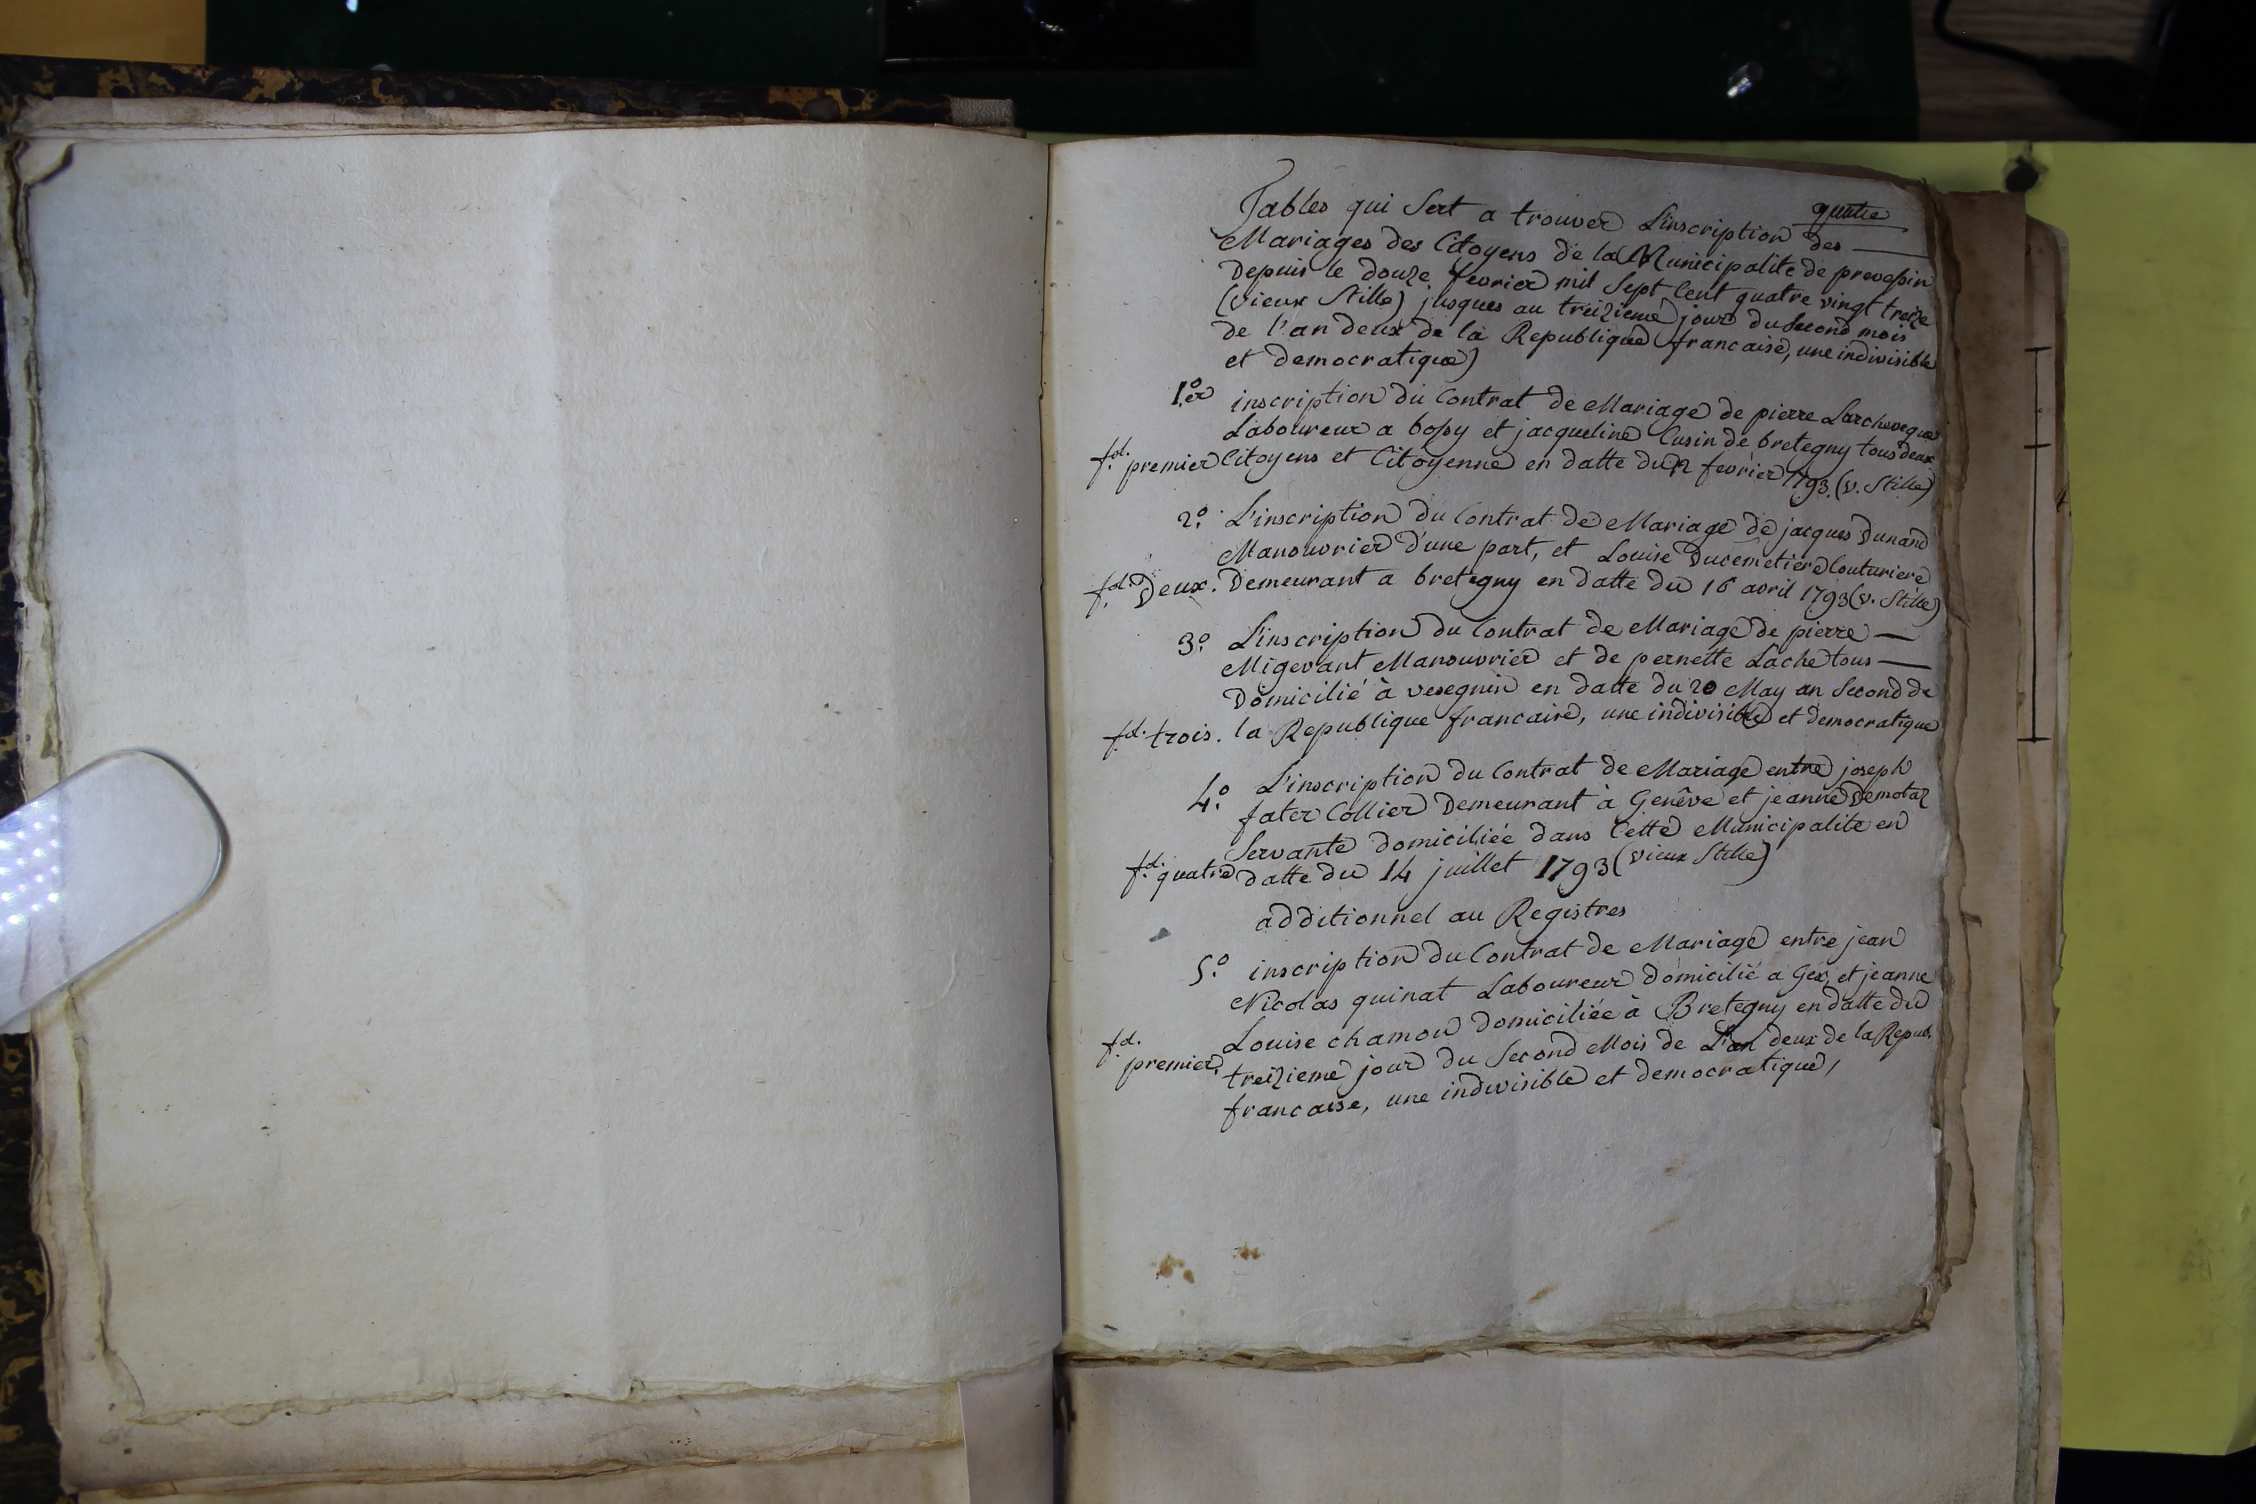 quatre
Tables qui Sert a trouver L'inscription des
Mariages des Citoyens de la Municipalite de prevessin
Depuis le douze fevrier mil Sept Cent quatre vingt treize
(vieux Stille) jusques au treizieme jour du Second mois
de l'an deux de la Republique francaise, une indivisible
et democratique)
1.er inscription du Contrat de Mariage de pierre Larcheveque
Laboureur a bossy et jacqueline Cusin de bretegny tous deux
f.d. premier Citoyens et Citoyenne en datte du 12 fevrier 1793 (v. Stille)
2.o L'inscription du Contrat de Mariage de jacques Dunand
Manouvrier d'une part, et Louise Ducemetiere Couturiere
f.d. Deux. Demeurant a bretegny en datte du 16 avril 1793 (v. Stille)
3.o L'inscription du Contrat de Mariage de pierre
Migevant Manouvrier et de pernette Lache tous
Domicilié à vesegnin en datte du 20 May an Second de
f.d. trois. la Republique francaise, une indivisible et democratique
4.o L'inscription du Contrat de Mariage entre joseph
fater Collier Demeurant à Genêve et jeanne Demotaz
Servante domiciliée dans Cette Municipalite en
f.d. quatre datte du 14 juillet 1793 (vieux Stille)
additionnel au Registres
5.o inscription du Contrat de Mariage entre jean
Nicolas quinat Laboureur domicilié a Gex, et jeanne
Louise chamou domiciliée à Bretegny en datte du
f.d. premier. treizieme jour du Second Mois de L'an deux de la Repub.
francaise, une indivisible et democratique,